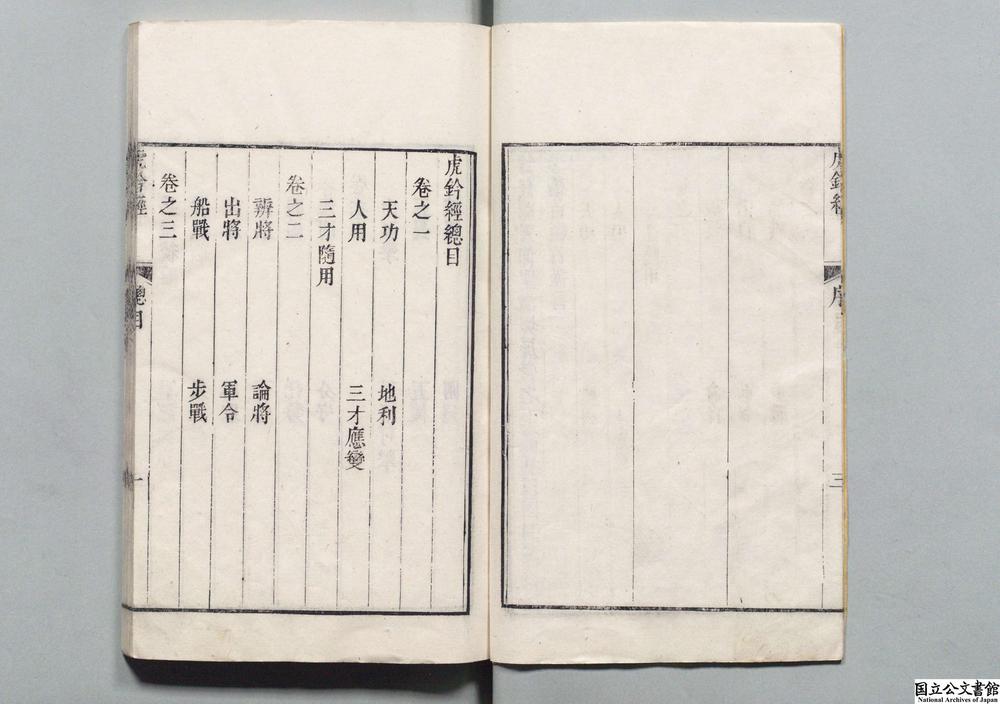 虎鈐經
序
三
虎鈐經總目
卷之一
天功 地利
人用 三才應變
三才隨用
卷之二
辨將 論將
出將 軍令
船戰 步戰
卷之三
虎鈐經
總目
一
国立公文書館
National Archives of Japan